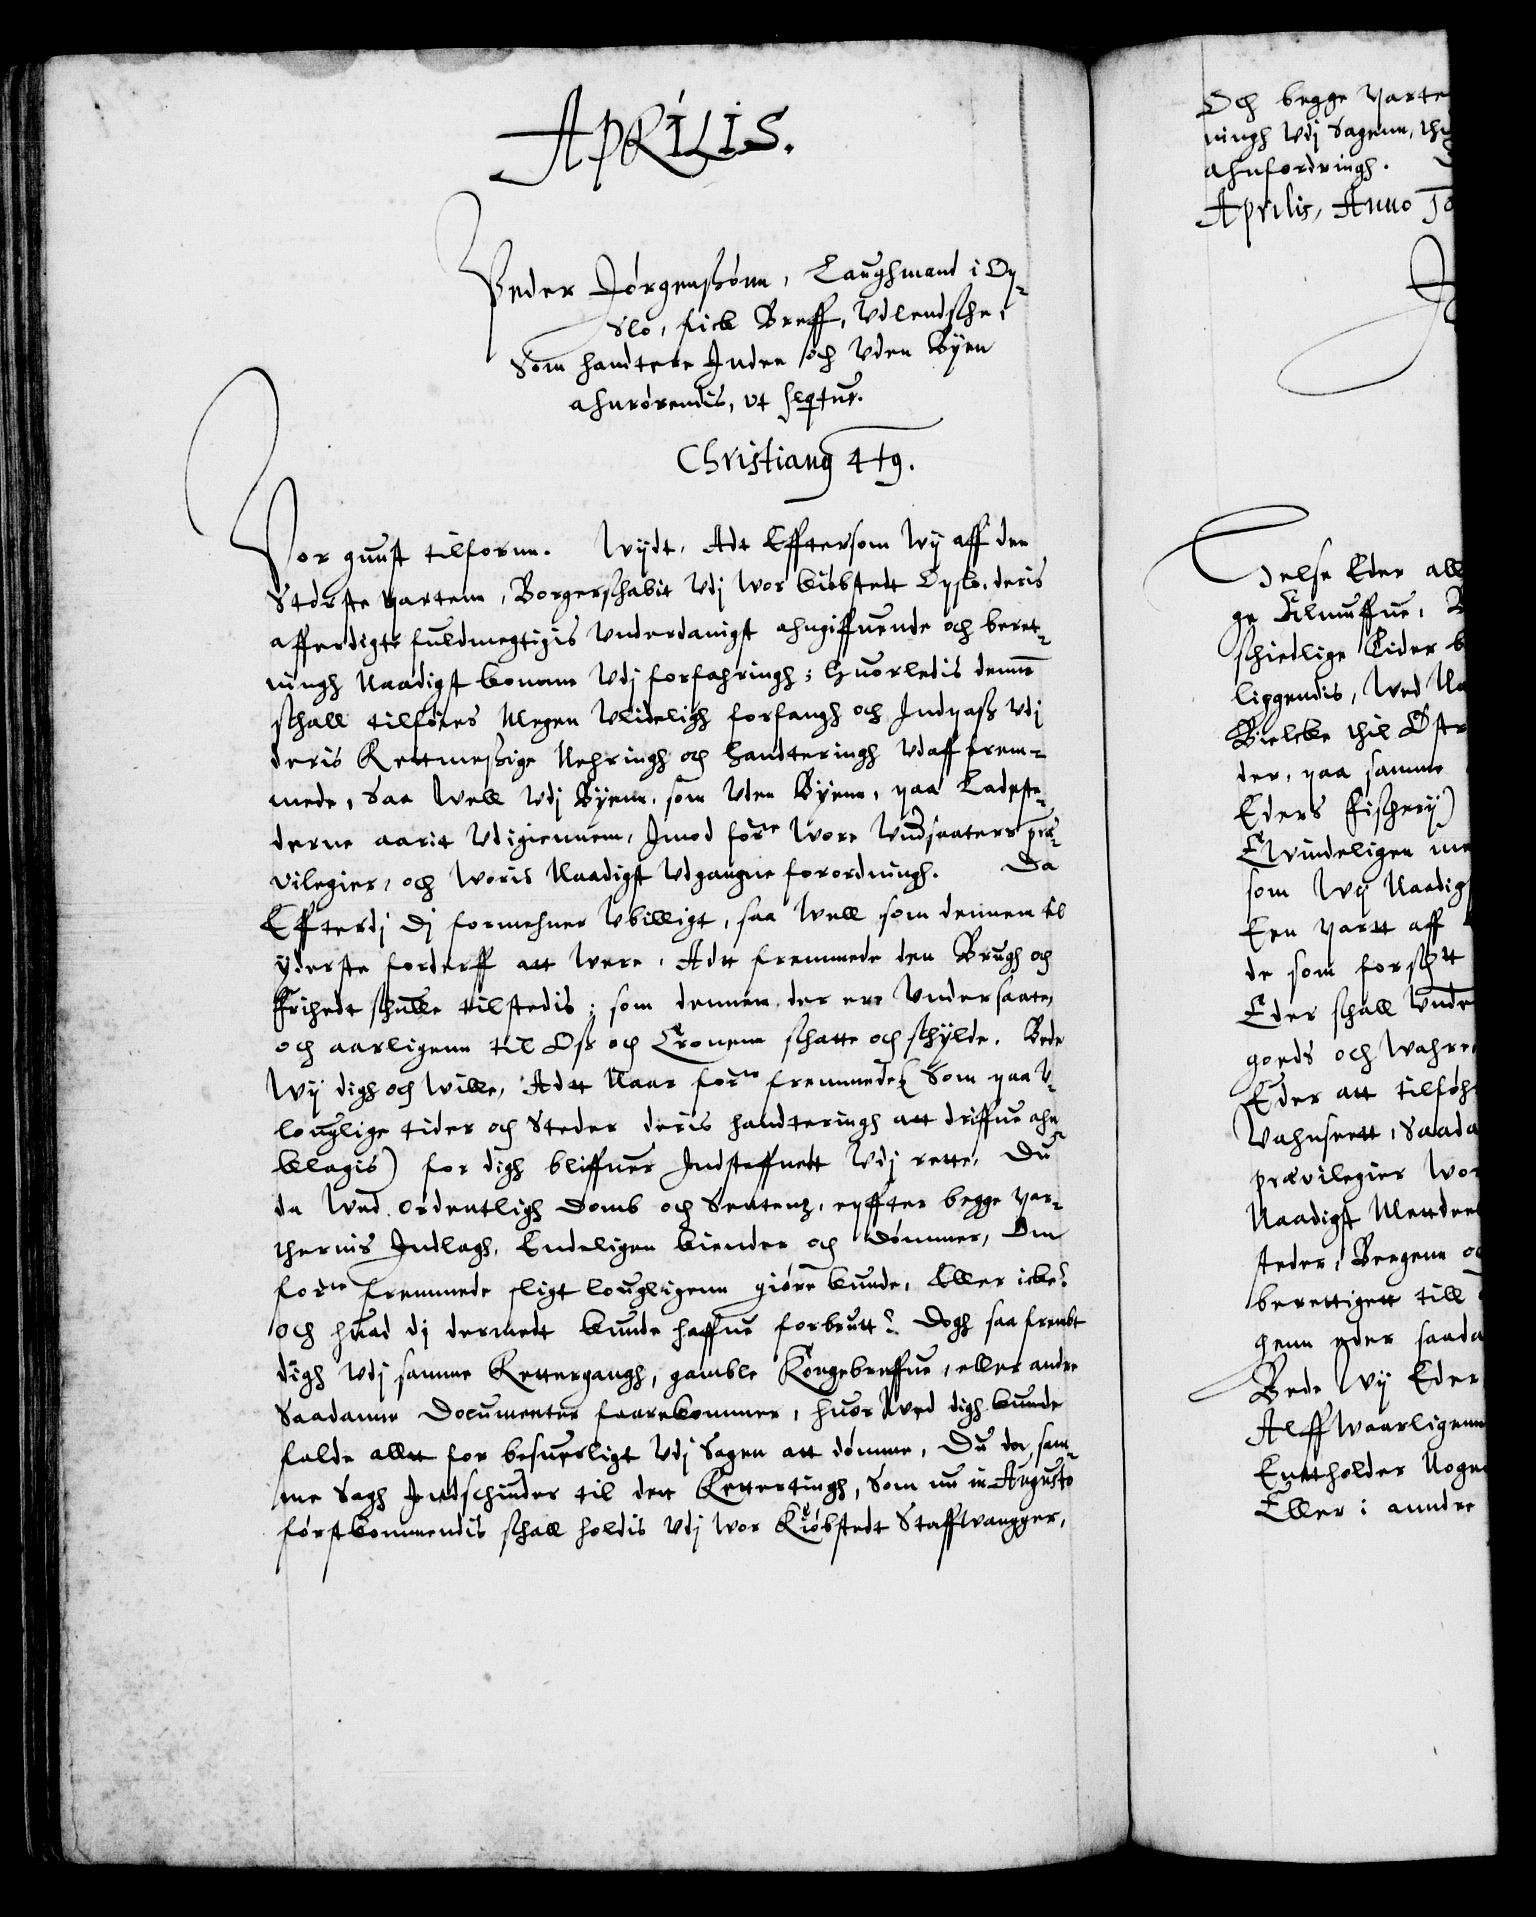 APRILIS.
Peder Jørgensønn, Laughmand i Op¬
slo, fick Breff, Udlendsche,
Som handtere Inden och Uden Byen
ahnrørendis, ut seqtur.
Christiang 4tg.
Vor gunst tilfornn. Wijdt, Adt Efftersom Wij aff den
Største partenn, Borgerschabit Udj wor kiøbstedt Opslo, deris
afferdigte fuldmegtigis Underdanigst ahngiffuende och beret¬
ningh Naadigst komme Udj forfahringh; huorledis dennē
schall tilføies Megen Ulideligh forfangh och Indpass Udj
deris Rettmessige Nehringh och handteringh Udaff frem¬
mede, Saa well Udj Byenn, som Uden Byenn, paa Ladeste¬
derne aarit Udigiennem, Imod forne Wore Undsaaters præ¬
vilegier, och Woris Naadigst Udgangne forordningh. Da
Effterdj Dj formehner Ubilligt, saa well som dennem til
yderste forderff att were, Adtt fremmede den Brugh och
Frihedt schulle tilstedis; som dennem der ere Undersaate,
och aarligenn til Oss och Cronenn schatte och schylde. Bede
Wij digh och wille, Adtt Naar forne fremmede (Som paa U¬
louglige tider och Steder deris handteringh att driffue ahn¬
klagis) for digh bliffuer Indsteffnett Udj rette, Du
da wed ordentligh Domb och Sententz, epffter begge par¬
thernis Indlagh, Endeligen kiender och dømmer, Om
forne fremmede sligt lougligenn giøre kunde, Eller icke?
och huad dj dermett kunde haffue forbrutt? Dogh saa frembt
digh Udj samme Rettergangh, gamble Kongebreffue, eller andre
Saadanne Documenter faarekommer, huor wed digh kunde
falde alltt for besuerligt Udj Sagen att dømme, Du da sam¬
me Sagh Indschiuder til den Rettertingh, Som nu in Augusto
førstkommendis schall holdis Udj wor Kiøbstedt Staffwangger,
Och begge parte
ningh Udj Sagenn, th
ahnfordringh.
Aprilis, Anno
Helse Eder all
ge Almuffue,
schiedlige Tider b
liggendis, Wed Na
Bielcke thil Østr
der, paa samme
Eders Fischerij)
Qvindeligen me
som Wij Naadig
Een partt aff
de som forschtt
Eder schall Unde
goeds och Wahre
Eder att tilføh
Vahnseett, Saada
prævilegier Wor
Naadigst Meddeel
steder, Bergenn oc
berettigett till
genn eder saada
Bede Wij Eder
Alffwaarligenn
Enttholder Noge
Eller i anndre